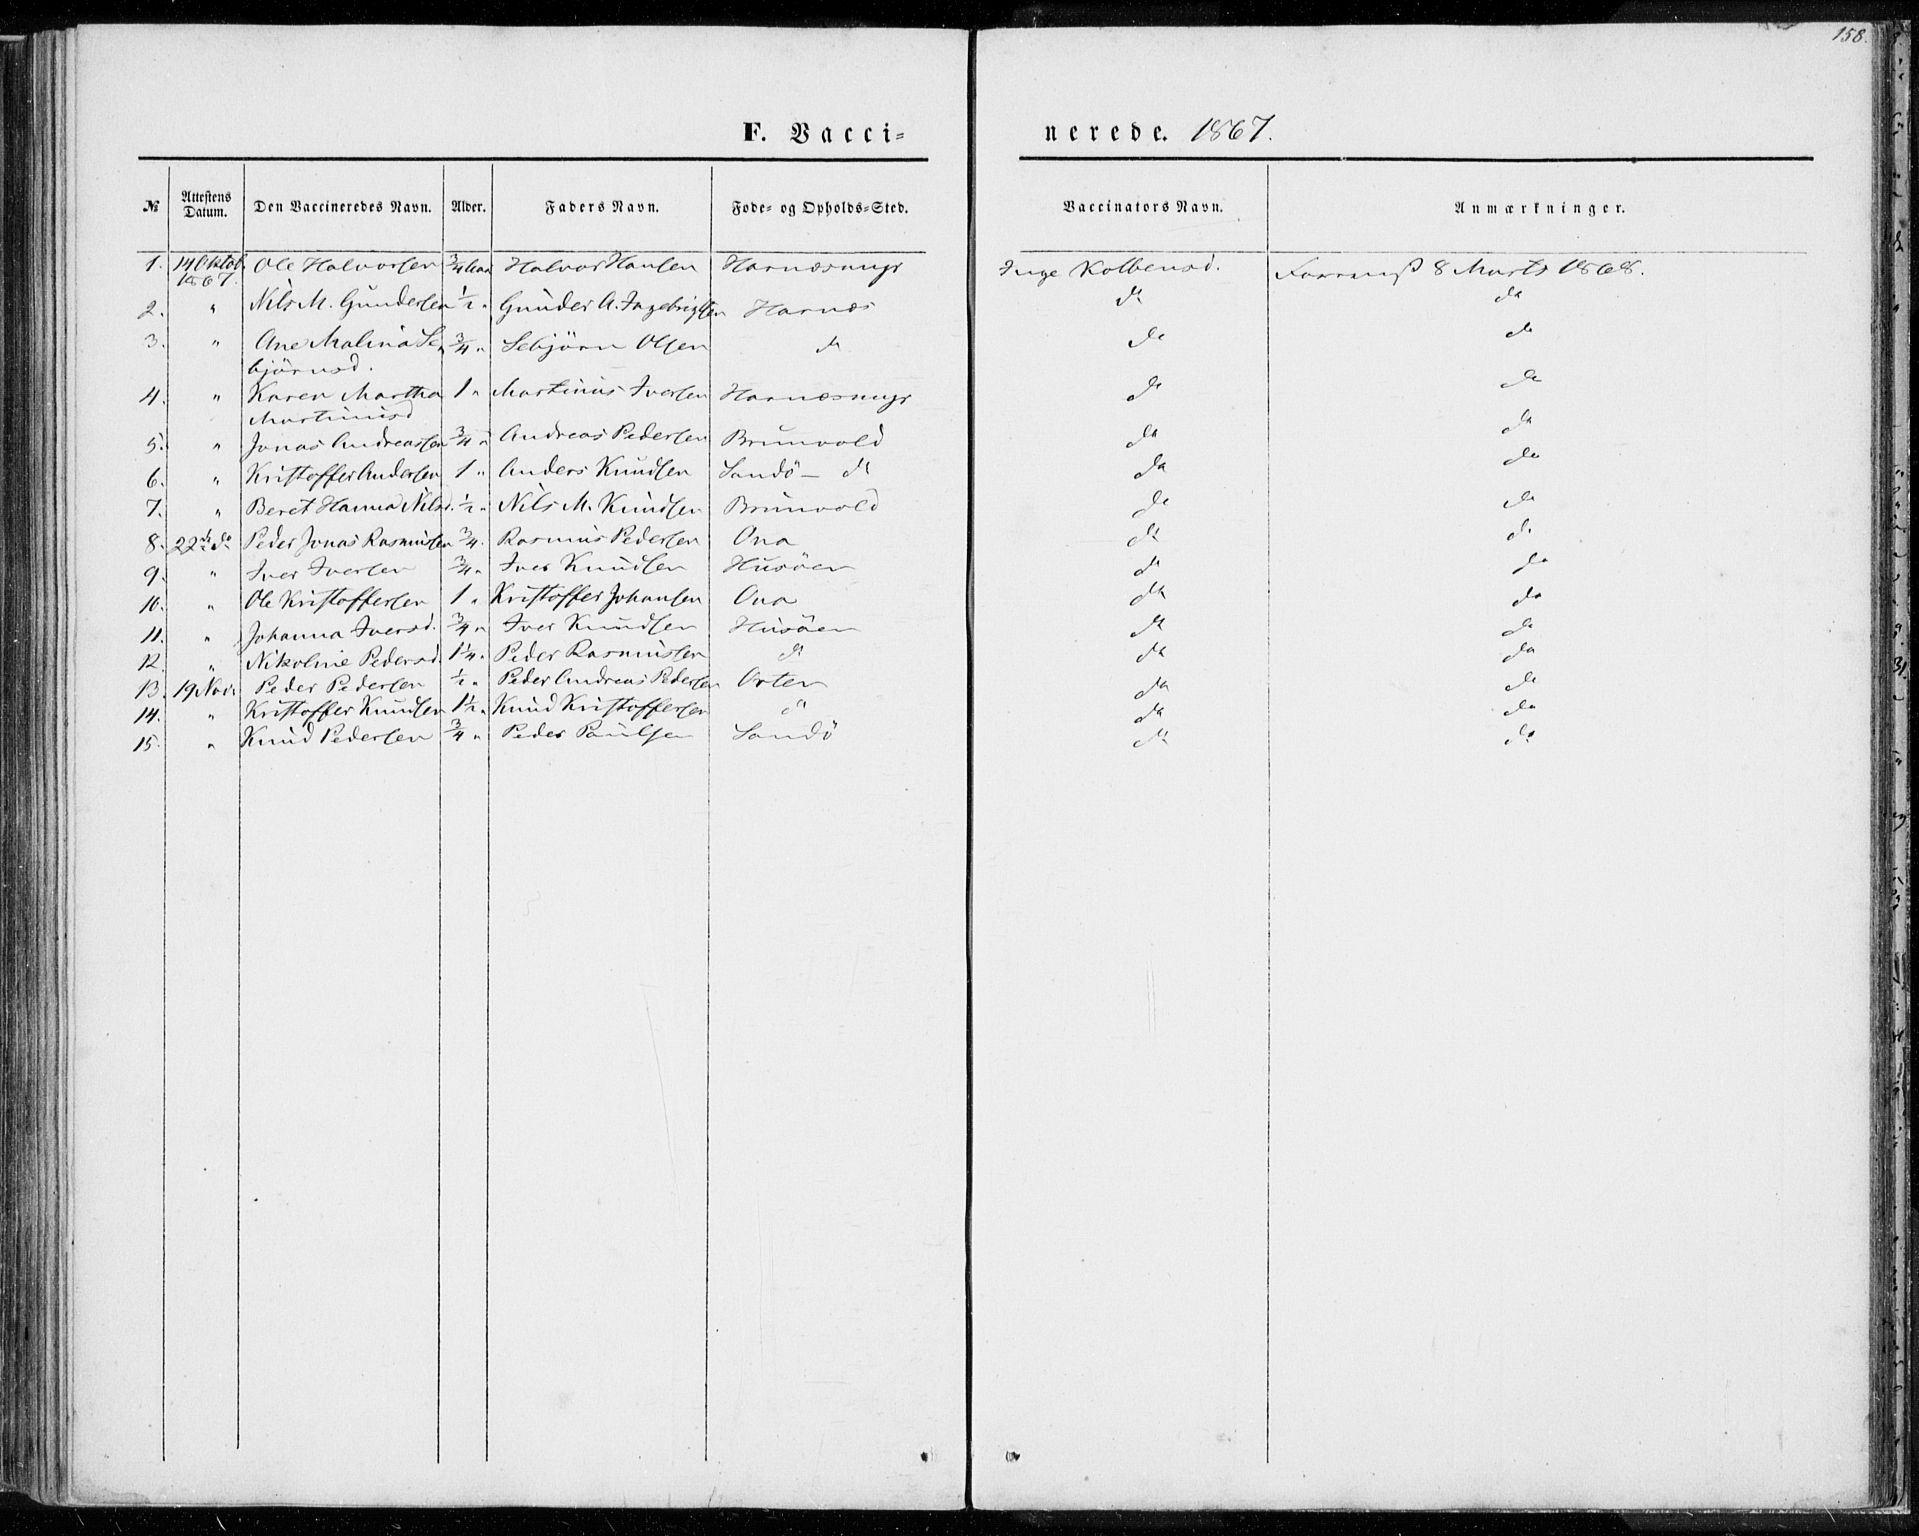 158.
F. Vaccinerede. 1867.
№ Attestens Datum. Den Vaccineredes Navn. Alder. Faders Navn. Føde- og Opholds-Sted. Vaccinators Navn. Anmærkninger.
1. 14 Oktob. 1867. Ole Halvorsen 3/4 Aar Halvor Hansen Harnæsmyr Inge Kolbensd. 8 Marts 1868.
2. " Nils M. Gundersen 1/2 " Gunder A. Ingebrigtsen Harnæs do do
3. " Ane Malina Se- 3/4 " Sebjörn Olsen do do do
björnsd.
4. " Karen Martha 1 " Martinus Iversen Harnæsmyr do do
Martinusd
5. " Jonas Andreassen 3/4 " Andreas Pedersen Brunvold do do
6. " Kristoffer Andersen 1 " Anders Knudsen Sandö — do do do
7. " Beret Hanna Nilsd. 1/2 " Nils M. Knudsen Brunvold do do
8. 22de do Peder Jonas Rasmussen 3/4 " Rasmus Pedersen Ona do do
9. " Iver Iversen 3/4 " Iver Knudsen Husöen do do
10. " Ole Kristoffersen 1 " Kristoffer Johansen Ona do do
11. " Johanna Iversd. 3/4 " Iver Knudsen Husöen do do
12. " Nikoline Pedersd. 1 1/4 " Peder Rasmussen do do do
13. 19 Nov. Peder Pedersen 1/2 " Peder Andreas Pedersen Orten do do
14. " Kristoffer Knudsen 1 1/2 " Knud Kristoffersen do do do
15. " Knud Pedersen 3/4 " Peder Paulsen Sandö do do